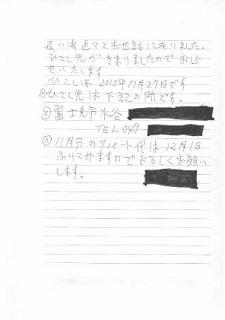 長い間色々とお世話に成りました。
ひこし先がきまりましたのでおしら
せいたします
ひこしは 2015年11月27日です
ひこし先は下記の所です。
富士見市水谷
TEL 049-
11月分のアパート代は12月1日
ふりこみますのでよろしくお願い
します。